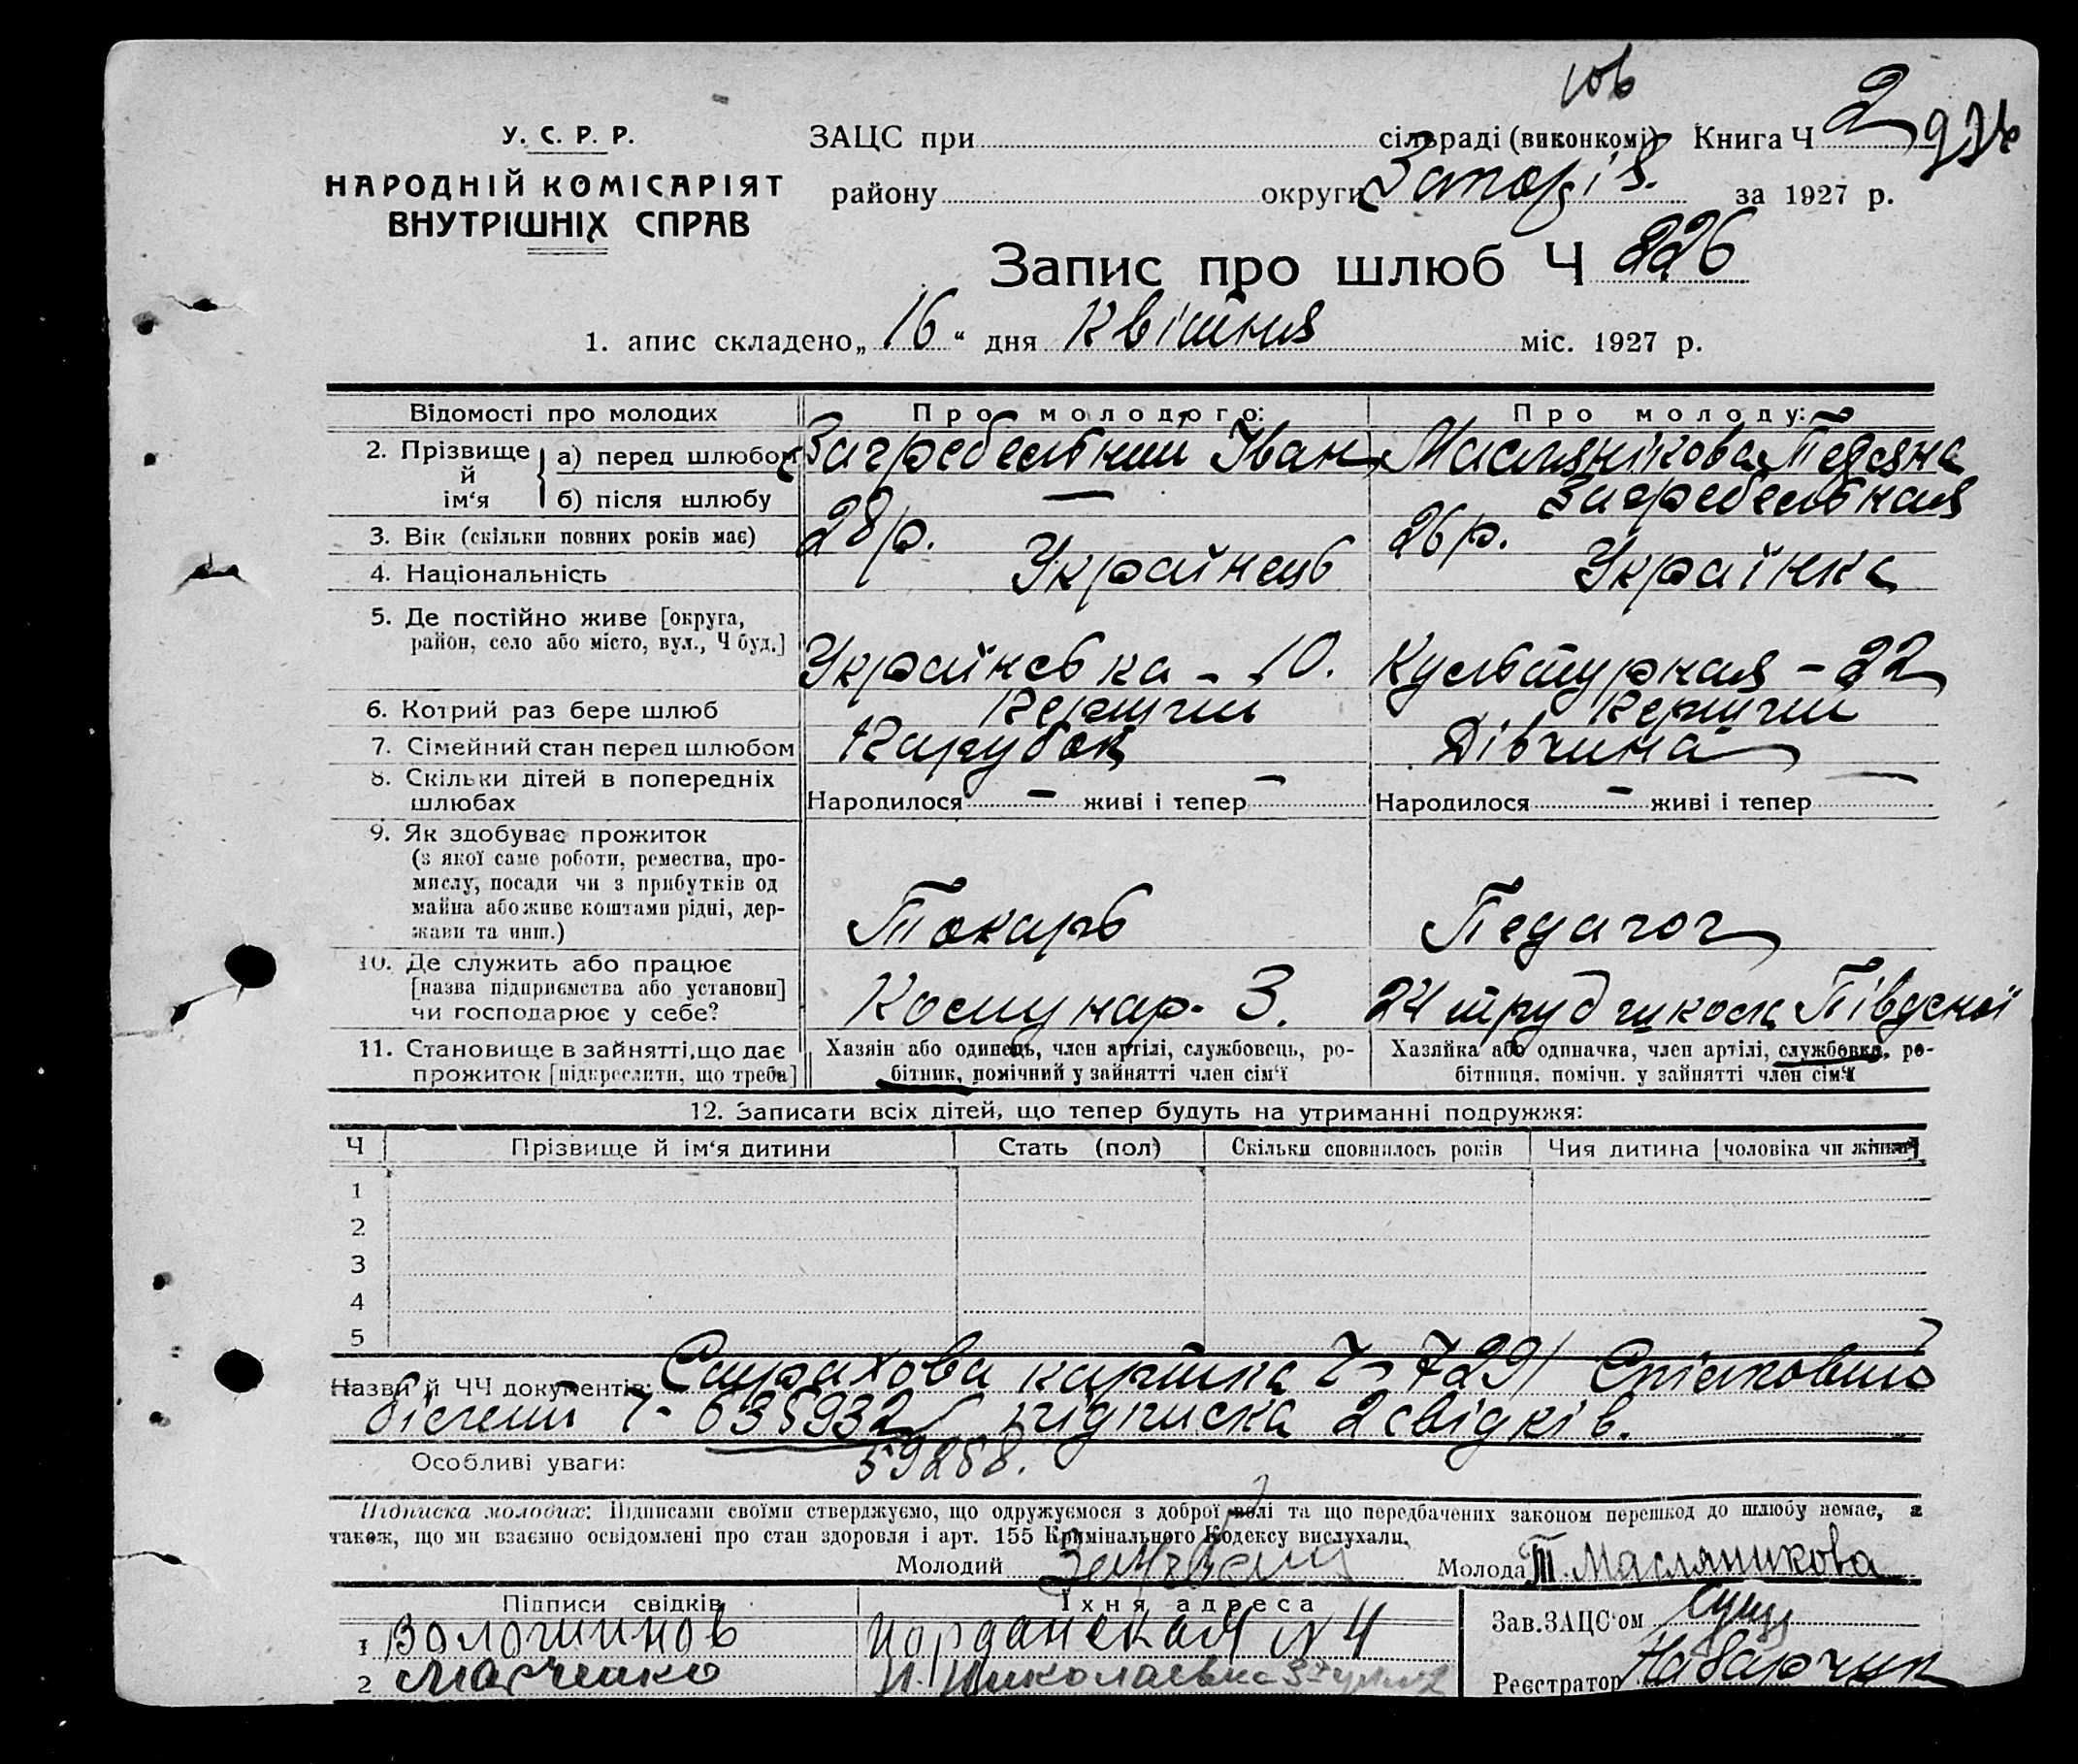 У. С. Р. Р.
НАРОДНІЙ КОМІСАРІЯТ
ВНУТРІШНІХ СПРАВ
106
ЗАЦС при сільраді (виконкомі) Книга Ч 2
району округи Запоріз. за 1927 р.
Запис про шлюб Ч 226
1. апис складено „ 16 “ дня Квітня міс. 1927 р.
Відомості про молодих Про молодого: Про молоду:
2. Прізвище й ім‘я а) перед шлюбом Загребельний Іван Маслянікова Тетяна
б) після шлюбу — Загребельная
3. Вік (скільки повних років має) 28 р. 26 р.
4. Національність Українець Українка
5. Де постійно живе [округа,
район, село або місто, вул., Ч буд.] Українська - 10. Культурная - 22
6. Котрий раз бере шлюб Перший Перший
7. Сімейний стан перед шлюбом Парубок Дівчина
8. Скільки дітей в попередніх
шлюбах Народилося — живі і тепер — Народилося — живі і тепер —
9. Як здобуває прожиток
(з якої саме роботи, ремества, про-
мислу, посади чи з прибутків од
майна або живе коштами рідні, дер-
жави та инш.) Токарь Педагог
10. Де служить або працює
[назва підприємства або установи]
чи господарює у себе? Комунар. З. 24 труд школа Південої
11. Становище в зайнятті, що дає
прожиток [підкреслити, що треба]
Хазяін або одинець, член артілі, службовець, ро-
бітник, помічний у зайнятті член сім‘ї
Хазяйка або одиначка, член артілі, службовка, ро-
бітниця, помічн. у зайнятті член сім‘ї
12. Записати всіх дітей, що тепер будуть на утриманні подружжя:
Ч Прізвище й ім‘я дитини Стать (пол) Скільки сповнилось років Чия дитина [чоловіка чи жінки]
1
2
3
4
5
Назви й ЧЧ документів: Страхова картка Ч- 729/ Спілковий
білет Ч- 635932/ підписка 2 свідків.
Особливі уваги: 59288.
Підписка молодих: Підписами своїми стверджуємо, що одружуємося з доброї волі та що передбачених законом перешкод до шлюбу немає, а
також, що ми взаємно освідомлені про стан здоровля і арт. 155 Кримінального Кодексу вислухали.
Молодий Молода Т. Масляникова
Підписи свідків Їхня адреса
1 Вологшинов Иорданская N 4
2 Марченко Н. Николаевка
Зав. ЗАЦС‘ом
Реєстратор